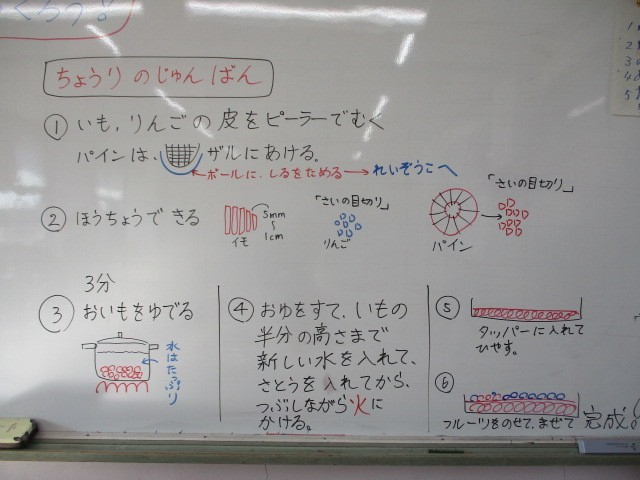 くろう!
ちょうりのじゅんばん
① いも,りんごの皮をピーラーでむく
パインは、ザルにあける。
←ボールに、しるをためる→れいぞうこへ
② ほうちょうできる
5mm
〜
1cm
イモ
「さいの目切り」
りんご
パイン
「さいの目切り」
3分
③ おいもをゆでる
水はたっぷり
④ おゆをすて、いもの
半分の高さまで
新しい水を入れて、
さとうを入れてから、
つぶしながら火に
かける。
⑤
タッパーに入れて
ひやす。
⑥
フルーツをのせて、まぜて 完成!